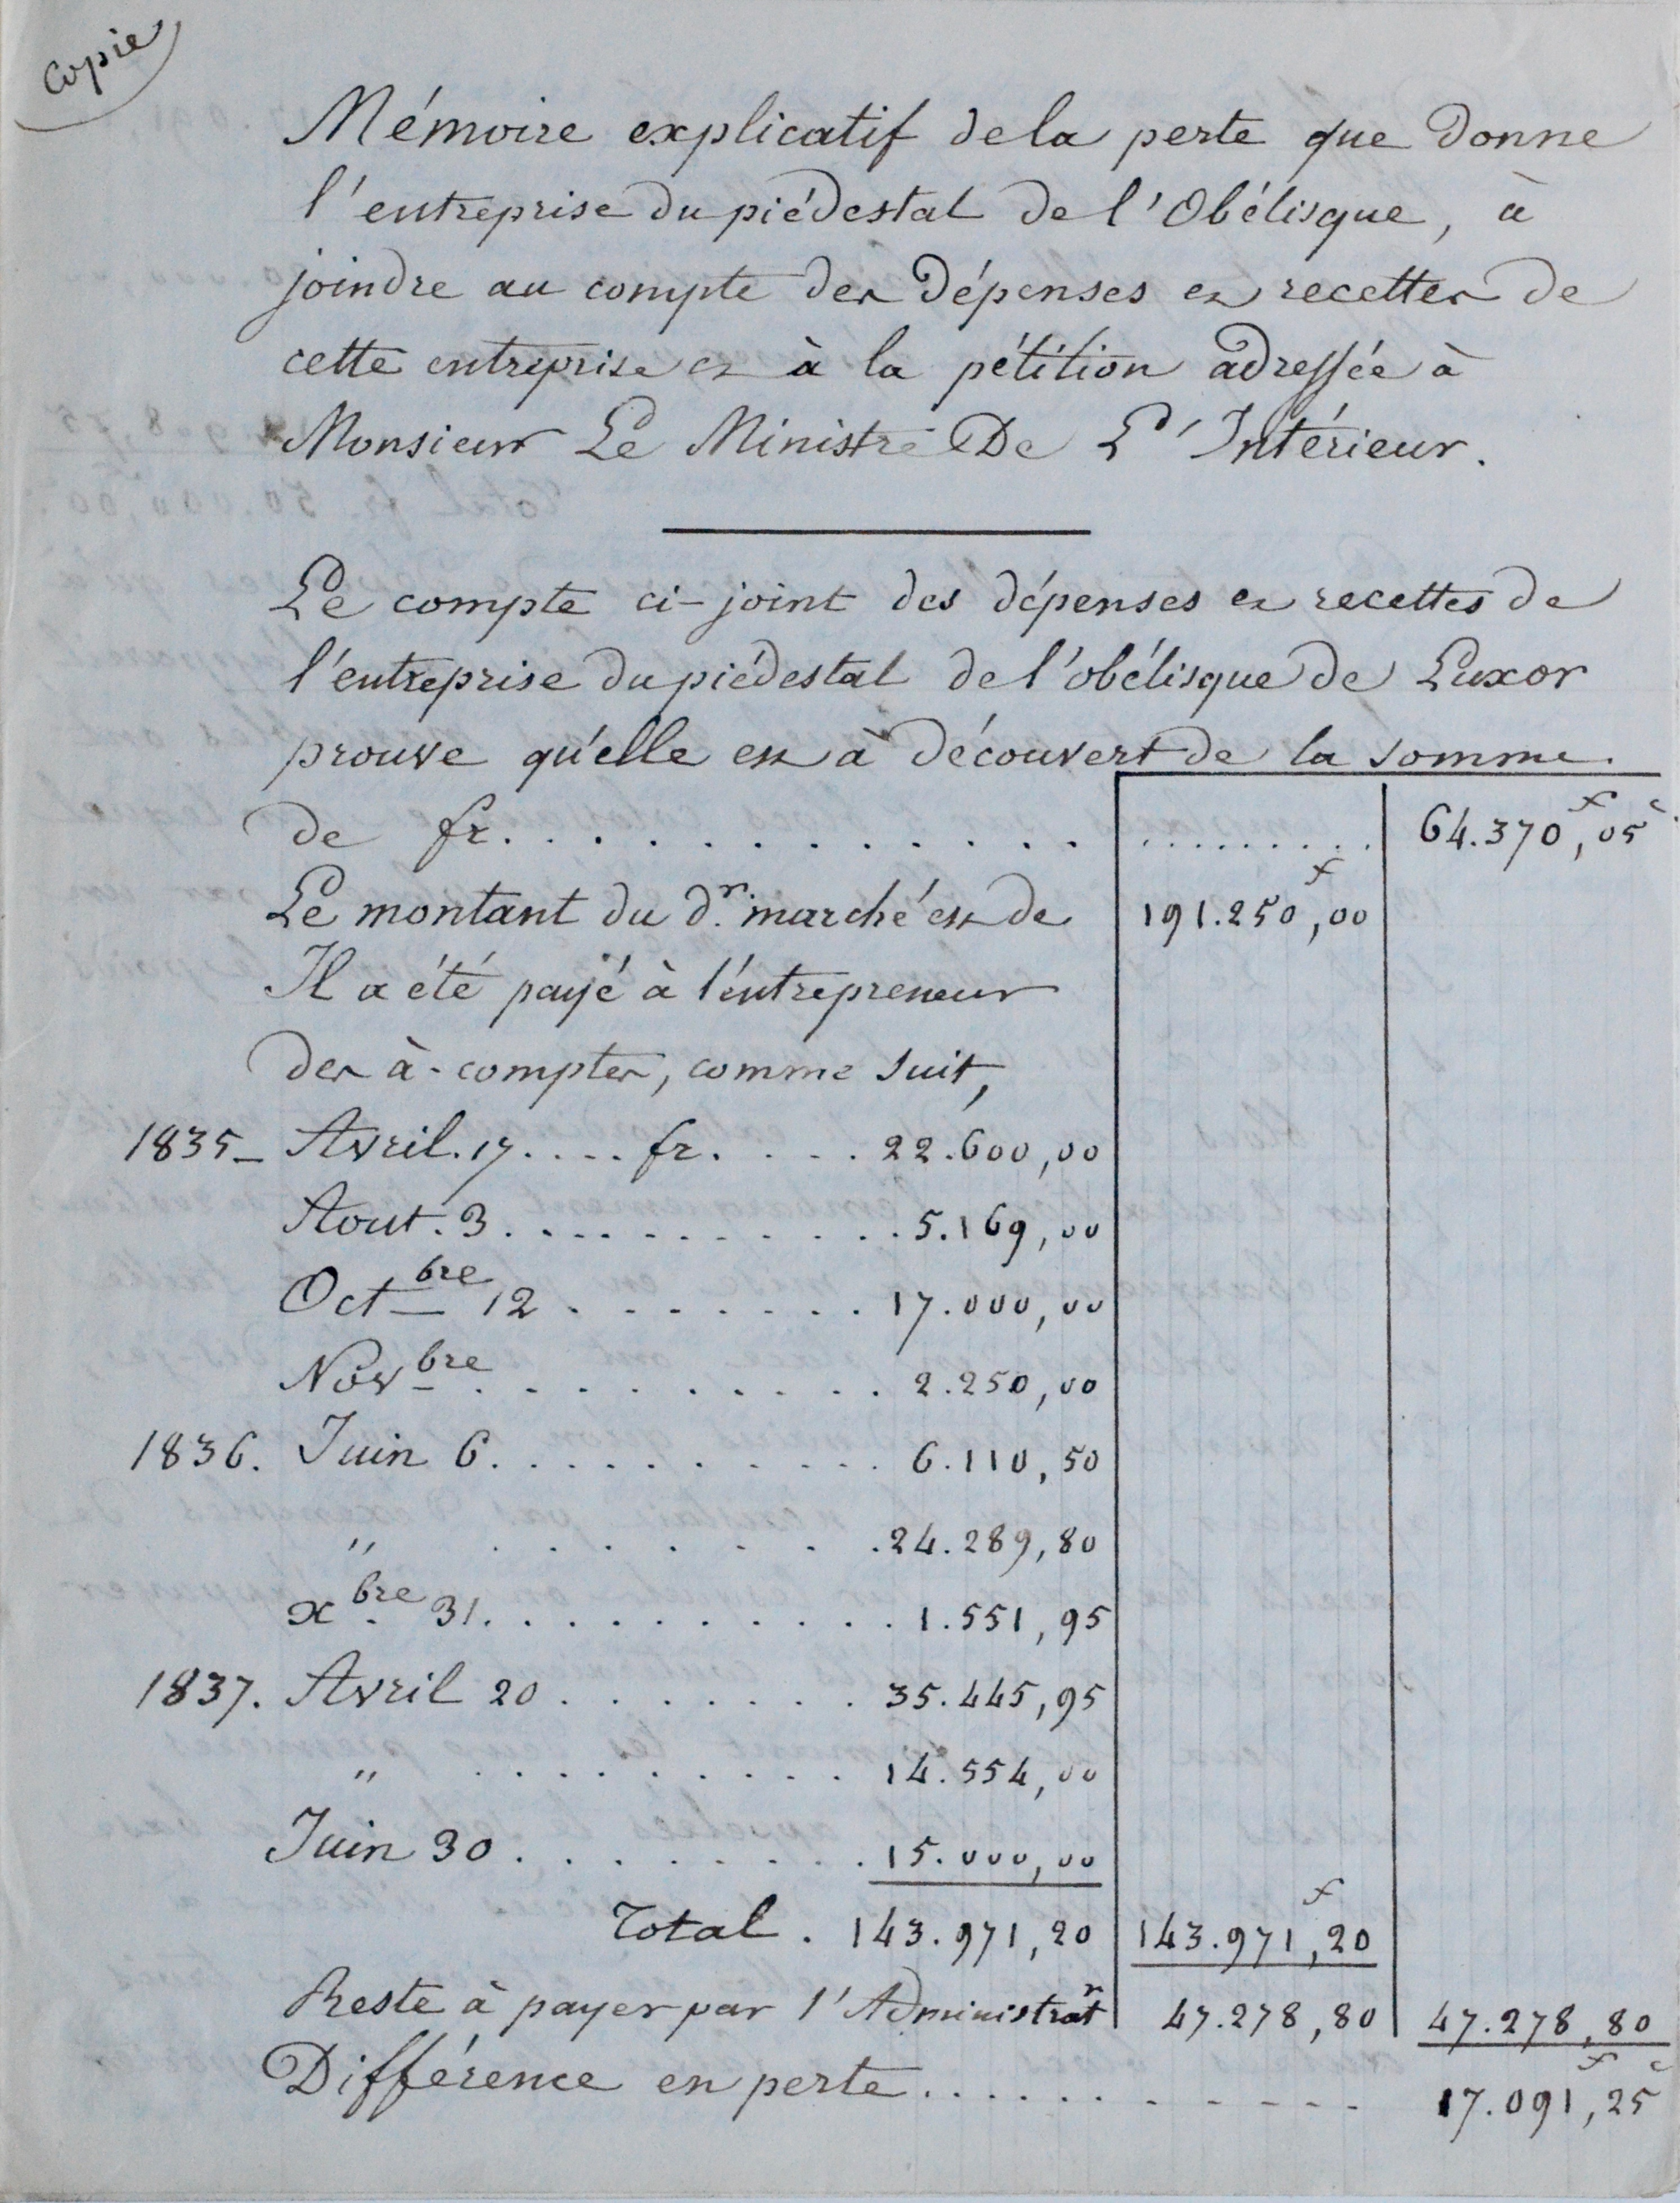 Copie
Mémoire explicatif de la perte que donne
l'entreprise du piédestal de l'Obélisque, à
joindre au compte des dépenses et recettes de
cette entreprise et à la pétition adressée à
Monsieur Le Ministre De L'Intérieur.
Le compte ci-joint des dépenses et recettes de
l'entreprise du piédestal de l'obélisque de Luxor
prouve qu'elle est à découvert de la somme
de fr. . . . . . . . . . . . . . . . . . . . 64.370f,05c
Le montant du dr. marché est de 191.250f,00
Il a été payé à l'entrepreneur
des à-comptes, comme suit,
1835_ Avril. 17 . . . . fr. . . . . 22.600,00
Aout. 3 . . . . . . . . . . . 5.169,00
Octbre 12 . . . . . . . 17.000,00
Novbre . . . . . . . . . 2.250,00
1836. Juin 6 . . . . . . . . . . 6.110,50
" . . . . . . . . 24.289,80
xbre 31 . . . . . . . . . . 1.551,95
1837. Avril 20 . . . . . . . 35.445,95
" . . . . . . . . . 14.554,00
Juin 30 . . . . . . . . . 15.000,00
Total . 143.971,20 143.971f,20
Reste à payer par l'Administratn 47.278,80 47.278,80
Différence en perte . . . . . . . . . . . . 17.091f,25c